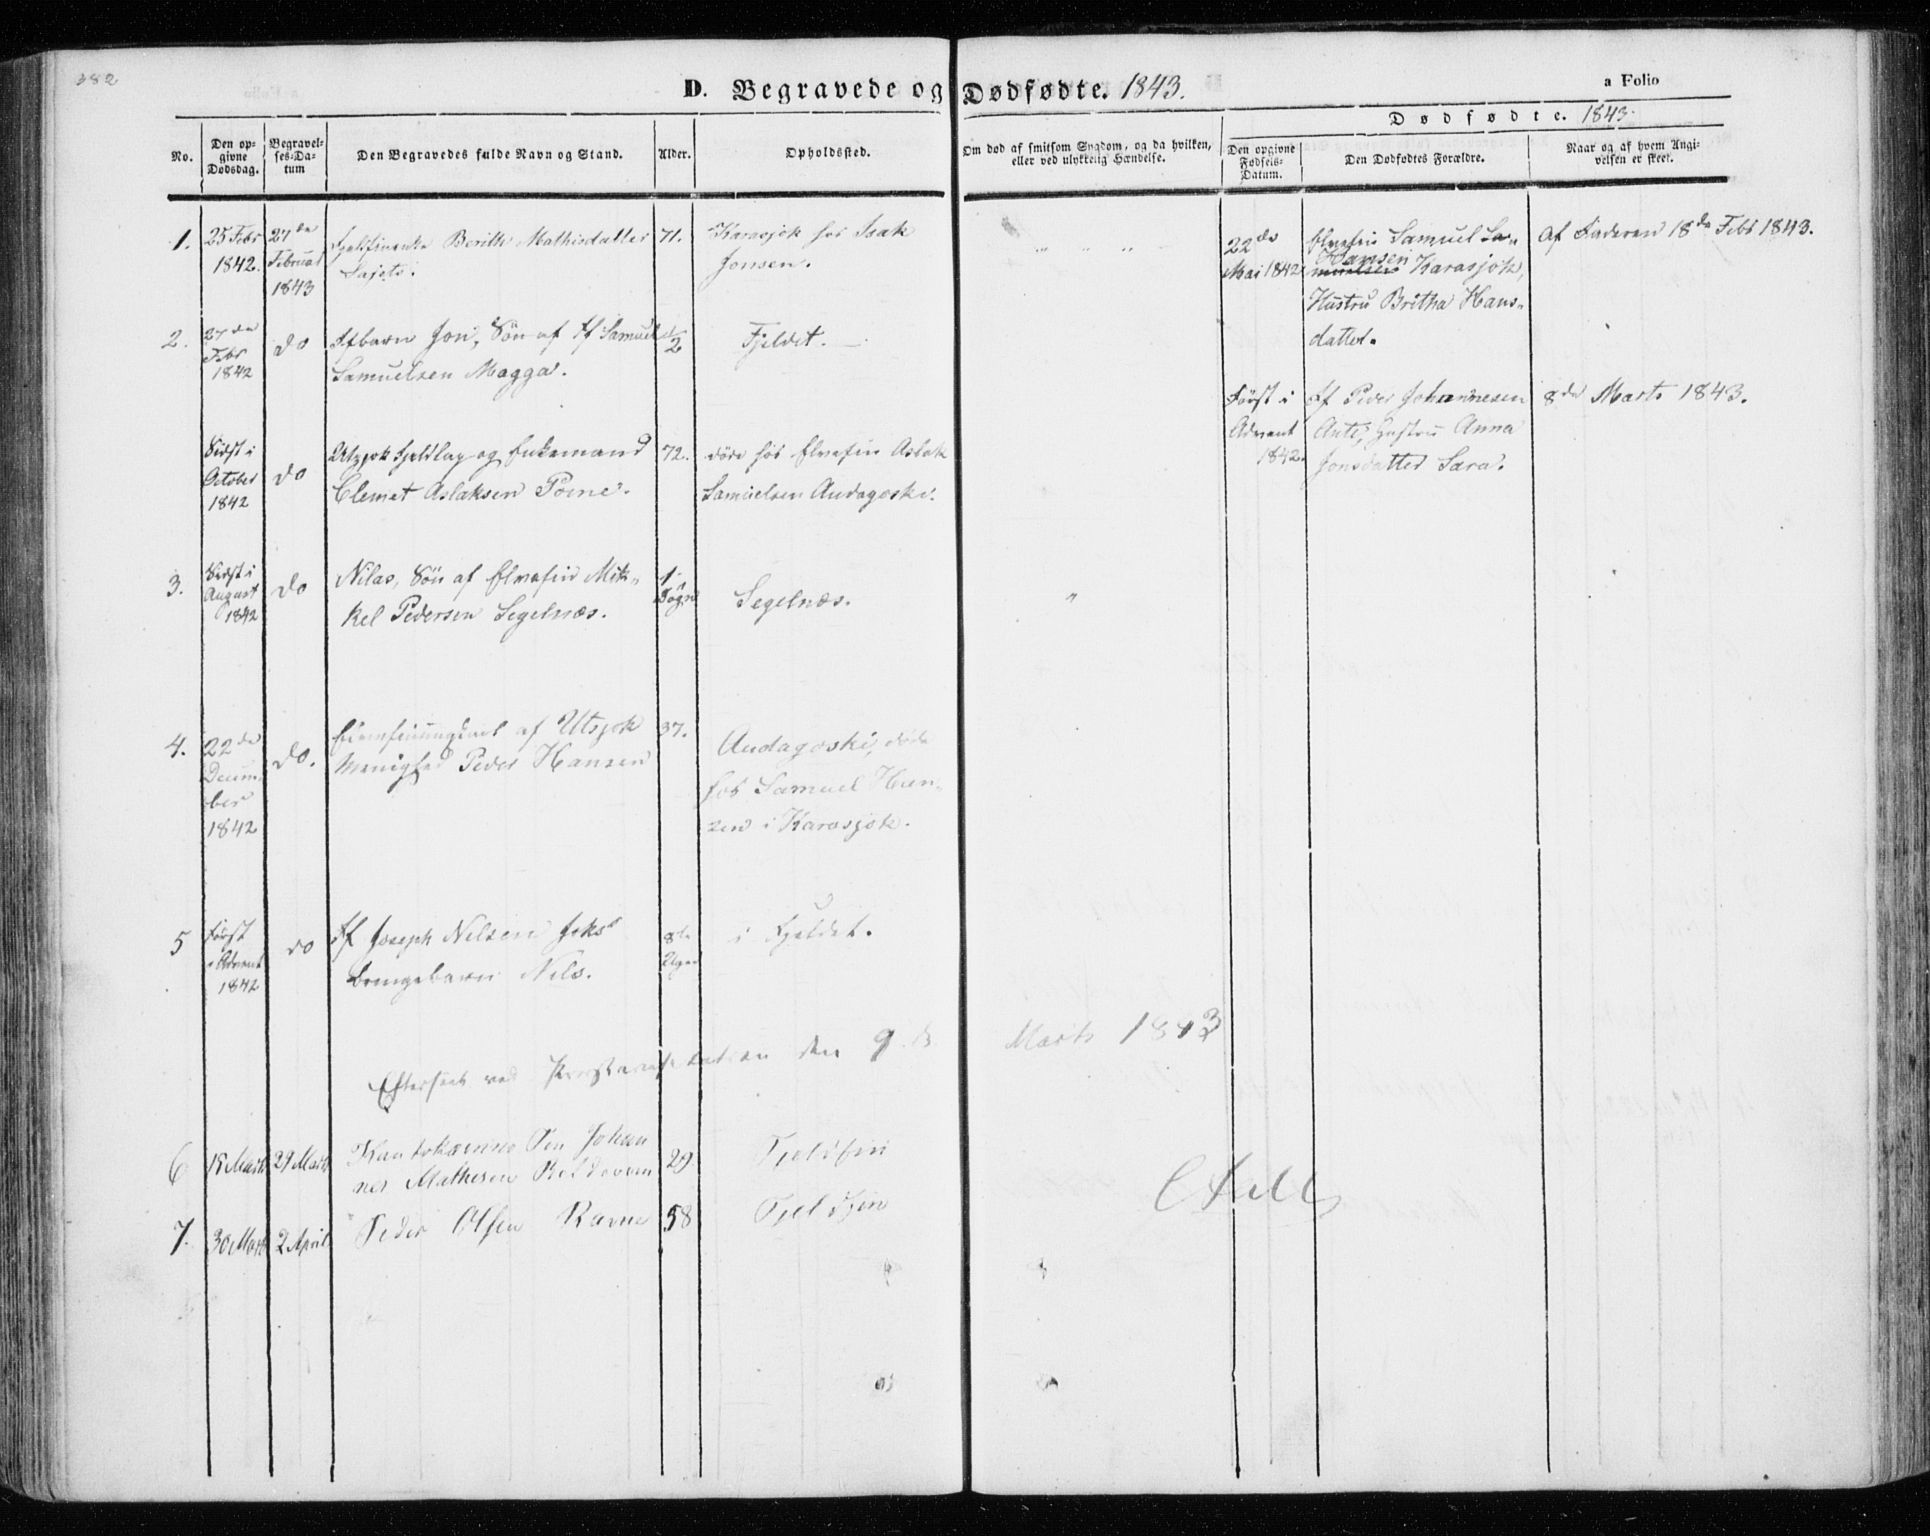 382
D. Begravede og Dødfødte. 1843.
a Folio
Dødfødte. 1843.
No.
Den opgivne Dødsdag.
Begravelses-Datum
Den Begravedes fulde Navn og Stand.
Alder.
Opholdssted.
Om død af smitsom Sygdom, og da hvilken, eller ved ulykkelig Hændelse.
Den opgivne Fødsels-Datum.
Den Dødfødtes Forældre.
Naar og af hvem Angivelsen er skeet.
1.
25 Febr
1842.
27de
Februar
1843
Berith Mathisdatter
Sajets.
71.
Karasjok hos Isak
Jonsen.
" " " "
22de
Mai 1842
Elvefin Samuel Sa-
Hansen
muelsen Karasjok,
Hustru Britha Hans-
datter.
Af Faderen 18de Febr 1843.
2.
27de
Febr
1842
do
Ffbarn Jon, Søn af Ff Samuel
Samuelsen Magga.
1/2
Fjeldet.
Først i
Advent
1842.
Ff Peder Johannesen
Anti, Hustru Anna
Jonsdatter Sara.
8de Marts 1843.
Sidst i
October
1842
do
Utzjok Fjeldlap og Enkemand
Clemet Aslaksen Porne.
72.
døde hos Elvefin Aslak
Samuelsen Audagoski.
3.
Sidst i
August
1842
do
Nilas, Søn af Elvefin Mik-
kel Pedersen Segelnæs.
1
Døgn
Segelnæs.
"
4.
22de
Decem-
ber
1842
do.
af Utsjok
Menighed Peder Hansen
37.
Audagoski, døde
hos Samuel Han-
sen i Karasjok.
5
Først
i Advent
1842
do
Ff Joseph Nilsen Joks
Drengebarn Nils.
8te
Uger
i Fjeldet.
Efterseet ved Provstevisitation den 9 d. Marts 1843
6
18 Marts
29 Marts
Kautokæino Søn Johan
nes Mathesen
29
Fjeldfin
7.
30 Marts
2 April
Peder Olsen Ravne
58
Fjeldfin